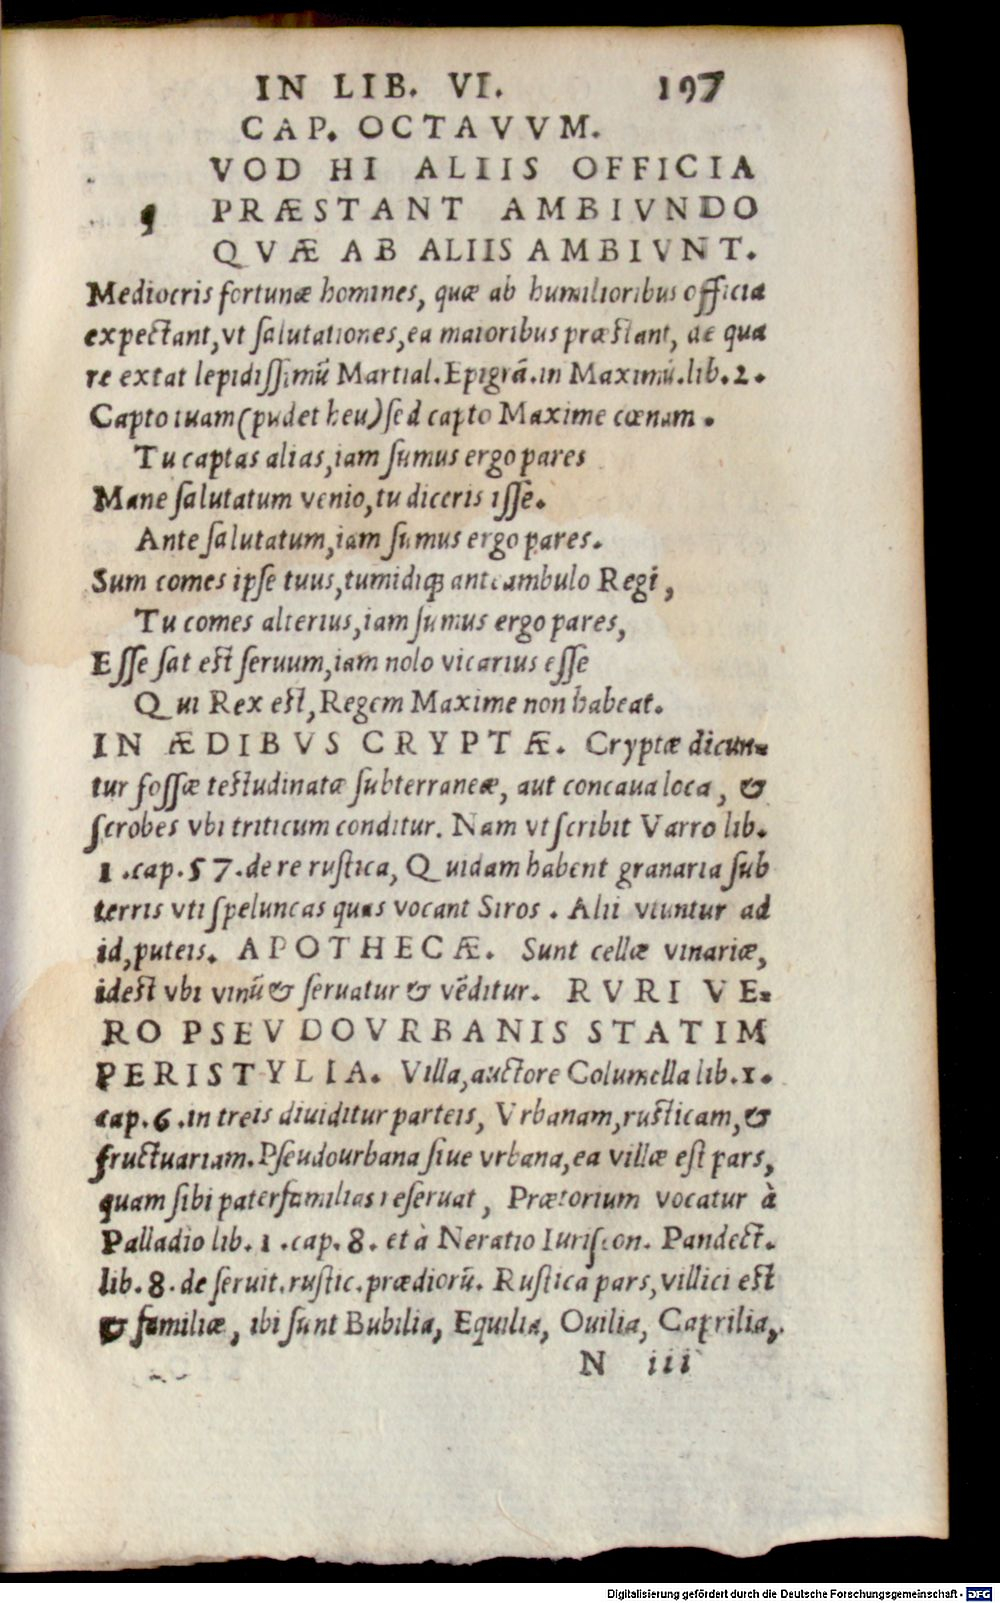 IN LIB. VI. 197
CAP. OCTAVVM.
q VOD HI ALIIS OFFICIA
PRÆSTANT AMBIVNDO
QVÆ AB ALIIS AMBIVNT.
Mediocris fortunæ homines, quæ ab humilioribus officia
expectant, vt ſalutationes, ea maioribus præſtant, de qua
re extat lepidiſſimū Martial. Epigrā. in Maximū. lib. 2.
Capto tuam (pudet heu) ſed capto Maxime cœnam.
Tu captas alias, iam ſumus ergo pares
Mane ſalutatum venio, tu diceris iſſe.
Ante ſalutatum, iam ſumus ergo pares.
Sum comes ipſe tuus, tumidiq́; anteambulo Regi,
Tu comes alterius, iam ſumus ergo pares,
Eſſe ſat eſt ſeruum, iam nolo vicarius eſſe
Qui Rex eſt, Regem Maxime non habeat.
IN ÆDIBVS CRYPTÆ. Cryptæ dicun-
tur foſſæ teſtudinatæ ſubterraneæ, aut concaua loca, &
ſcrobes vbi triticum conditur. Nam vt ſcribit Varro lib.
1. cap. 57. de re ruſtica, Quidam habent granaria ſub
terris vti ſpeluncas quas vocant Siros. Alii vtuntur ad
id, puteis. APOTHECÆ. Sunt cellæ vinariæ,
ideſt vbi vinū & ſeruatur & vēditur. RVRI VE-
RO PSEVDOVRBANIS STATIM
PERISTYLIA. Villa, auctore Columella lib. 1.
cap. 6. in treis diuiditur parteis, Vrbanam, ruſticam, &
fructuariam. Pſeudourbana ſiue vrbana, ea villæ eſt pars,
quam ſibi paterfamilias reſeruat, Prætorium vocatur à
Palladio lib. 1. cap. 8. et à Neratio Iuriſcon. Pandect.
lib. 8. de ſeruit. ruſtic. prædiorū. Ruſtica pars, villici eſt
& familiæ, ibi ſunt Bubilia, Equilia, Ouilia, Caprilia,
N iii
Digitalisierung gefördert durch die Deutsche Forschungsgemeinschaft - DFG